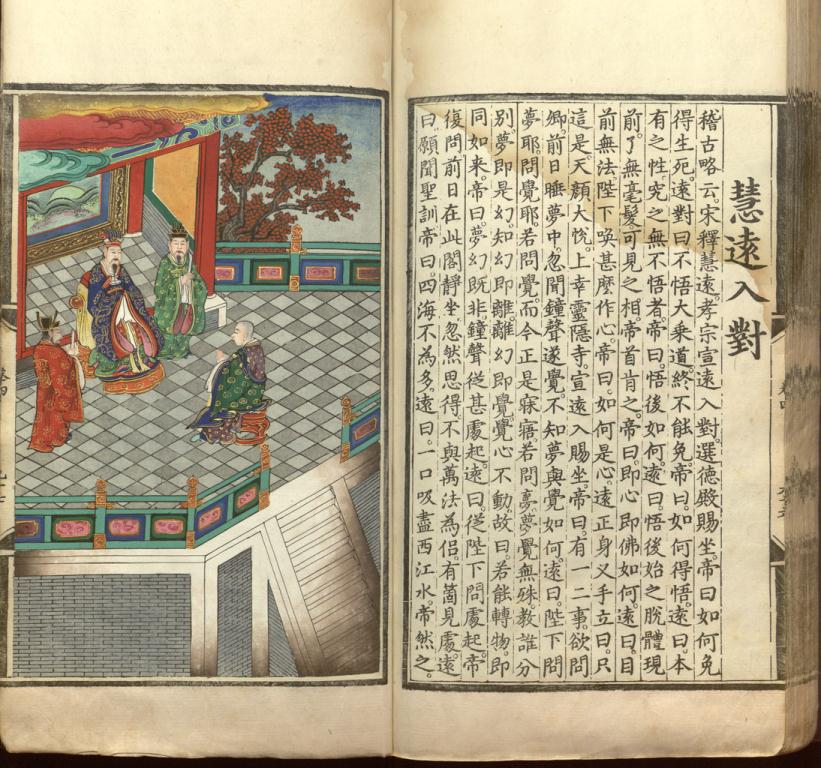 慧遠入對
稽古略云。宋釋慧遠。孝宗宣遠入對。選德殿賜坐。帝曰。如何免
得生死。遠對曰。不悟大乘道。終不能免。帝曰。如何得悟。遠曰。本
有之性。究之無不悟者。帝曰。悟後如何。遠曰。悟後始之脫體現
前。了無毫髮可見之相。帝首肯之。帝曰。即心即佛如何。遠曰。目
前無法。陛下喚甚麼作心。帝曰。如何是心。遠正身叉手立曰。只
這是。天顏大悅。上幸靈隱寺。宣遠入賜坐。帝曰。有一二事。欲問
卿。前日睡夢中。忽聞鐘聲。遂覺。不知夢與覺如何。遠曰。陛下問
夢耶。問覺耶。若問覺。而今正是寐寤。若問夢。夢覺無殊。教誰分
別。夢即是幻。知幻即離。離幻即覺。覺心不動。故曰。若能轉物。即
同如來。帝曰。夢幻既非。鐘聲從甚處起。遠曰。從陛下問處起。帝
復問。前日在此閣靜坐。忽然思得不與萬法為侶。有箇見處。遠
曰。願聞聖訓。帝曰。四海不為多。遠曰。一口吸盡西江水。帝然之。